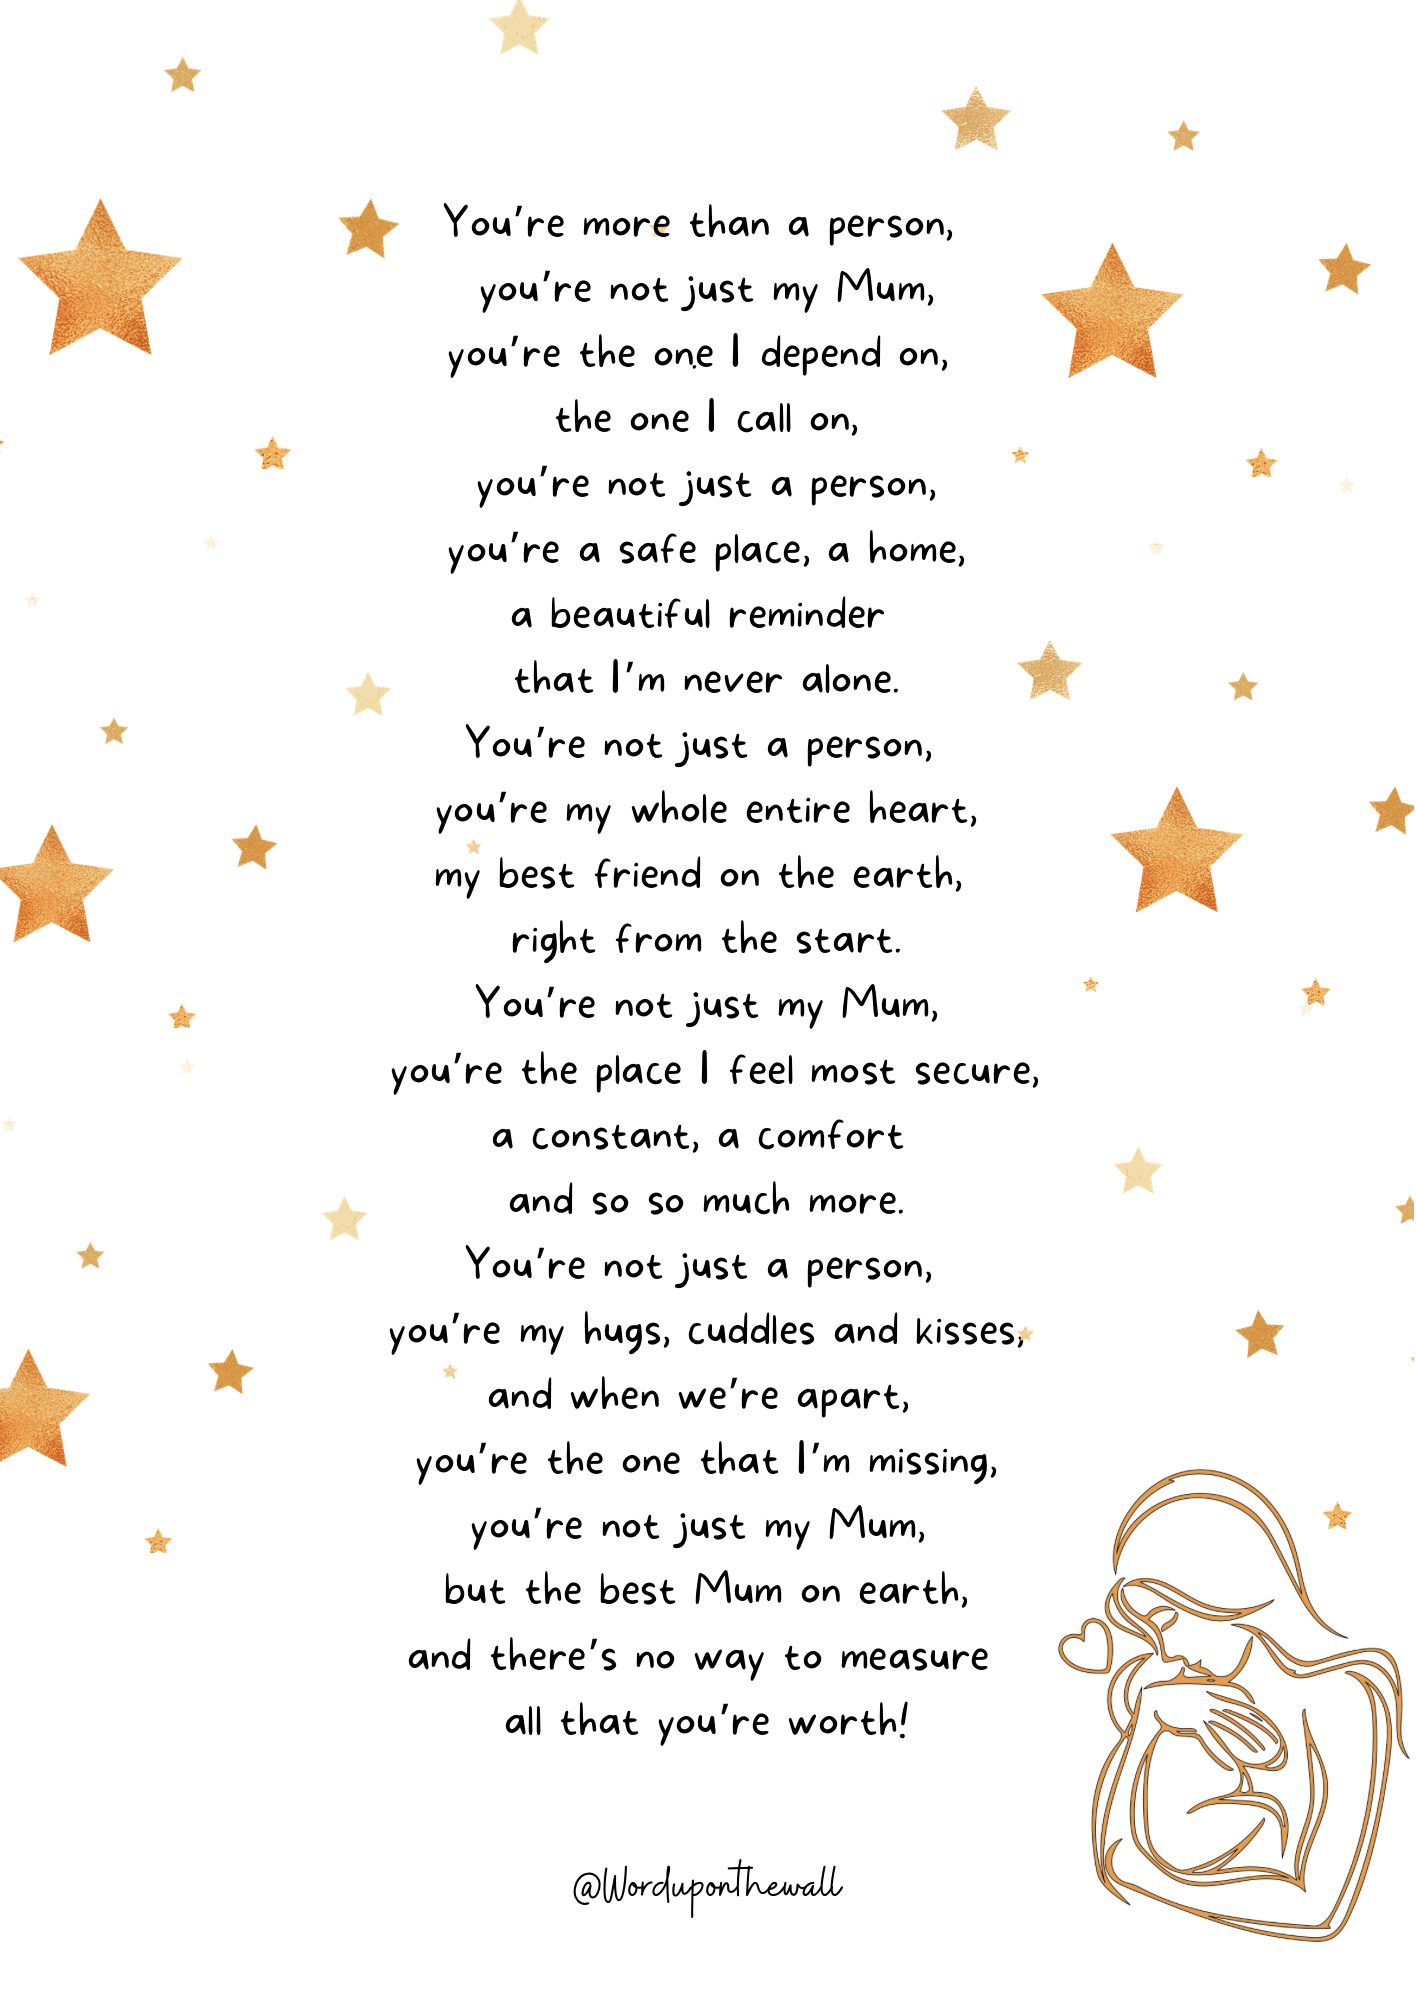 You're more than a person,
you're not just my Mum,
you're the one I depend on,
the one I call on,
you're not just a person,
you're a safe place, a home,
a beautiful reminder
that I'm never alone.
You're not just a person,
you're my whole entire heart,
my best friend on the earth,
right from the start.
You're not just my Mum,
you're the place I feel most secure,
a constant, a comfort
and so so much more.
You're not just a person,
you're my hugs, cuddles and kisses,
and when we're apart,
you're the one that I'm missing,
you're not just my Mum,
but the best Mum on earth,
and there's no way to measure
all that you're worth!
@Worduponthewall